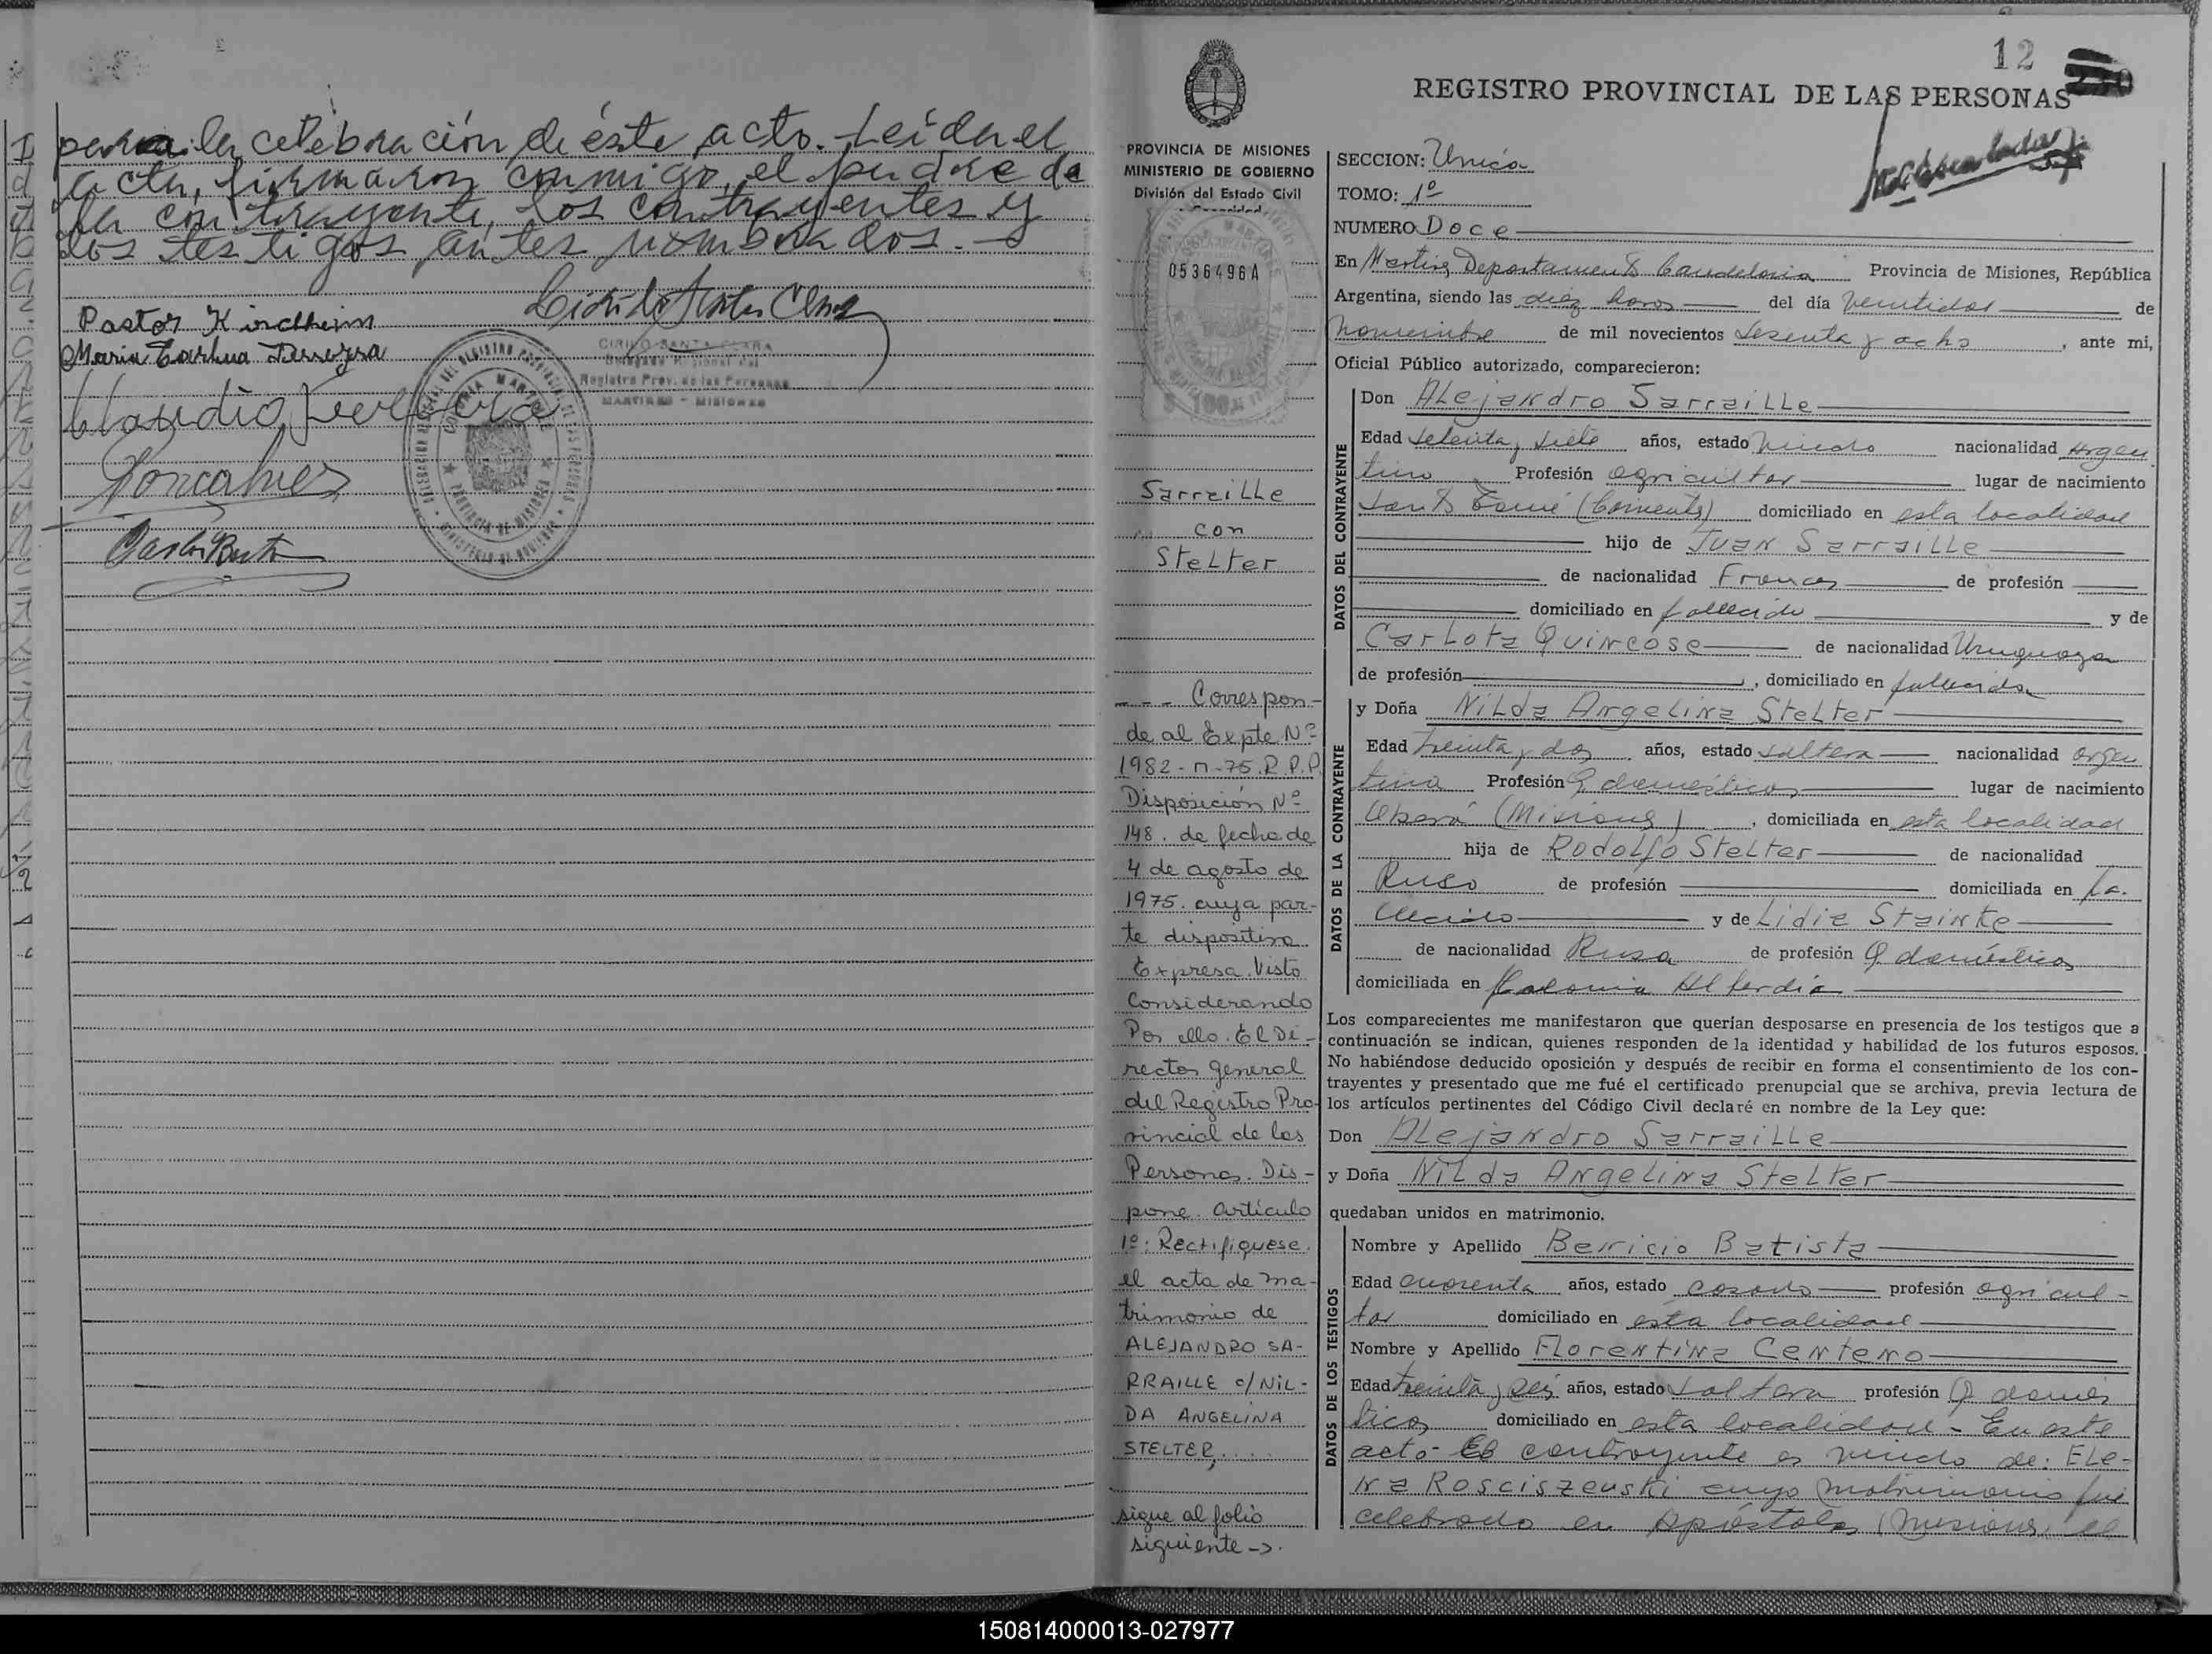 para la celebración de éste acto. Leída el
acta, firmaron conmigo, el padre de
la contrayente, los contrayentes y
los testigos antes nombrados.-
Pastor Kirchheim
Claudio
CIRILO SANTA CLARA
Delegado Regional del
Registro Prov. de las Personas
MARTIRES - MISIONES
12
REGISTRO PROVINCIAL DE LAS PERSONAS
PROVINCIA DE MISIONES
MINISTERIO DE GOBIERNO
División del Estado Civil
0536496A
Sarraille
con
Stelter
--- Correspon-
de al Expte Nº
1982-M-75. R.P.P.
Disposición Nº
148. de fecha de
4 de agosto de
1975. cuya par-
te dispositiva
Expresa. Visto
Considerando
Por ello. El Di-
rector General
del Registro Pro-
vincial de las
Personas. Dis-
pone. Artículo
1º: Rectifíquese.
el acta de ma-
trimonio de
ALEJANDRO SA-
RRAILLE c/ NIL-
DA ANGELINA
STELTER,
sigue al folio
siguiente ->.
SECCION: Unica
TOMO: 1º
NUMERO Doce
En Martires Departamento Candelaria Provincia de Misiones, República
Argentina, siendo las diez horas del día veintidos de
noviembre de mil novecientos sesenta y ocho, ante mi,
Oficial Público autorizado, comparecieron:
DATOS DEL CONTRAYENTE
Don Alejandro Sarraille
Edad setenta y siete años, estado viudo nacionalidad Argen
tino Profesión agricultor lugar de nacimiento
Santo Tomé (Corrientes) domiciliado en esta localidad
hijo de Juan Sarraille
de nacionalidad Frances de profesión
domiciliado en fallecido y de
Carlota Quincose de nacionalidad Uruguaya
de profesión, domiciliado en fallecida
DATOS DE LA CONTRAYENTE
y Doña Nilda Angelina Stelter
Edad treinta y dos años, estado soltera nacionalidad argen
tina Profesión Q domésticos lugar de nacimiento
Oberá (Misiones), domiciliada en esta localidad
hija de Rodolfo Stelter de nacionalidad
Ruso de profesión domiciliada en fa-
llecido y de Lidia Stainke
de nacionalidad Rusa de profesión Q domésticos
domiciliada en Colonia Alberdi
Los comparecientes me manifestaron que querían desposarse en presencia de los testigos que a
continuación se indican, quienes responden de la identidad y habilidad de los futuros esposos.
No habiéndose deducido oposición y después de recibir en forma el consentimiento de los con-
trayentes y presentado que me fué el certificado prenupcial que se archiva, previa lectura de
los artículos pertinentes del Código Civil declaré en nombre de la Ley que:
Don Alejandro Sarraille
y Doña Nilda Angelina Stelter
quedaban unidos en matrimonio.
DATOS DE LOS TESTIGOS
Nombre y Apellido Benicio Batista
Edad cuarenta años, estado casado profesión agricul-
tor domiciliado en esta localidad
Nombre y Apellido Florentina Centeno
Edad treinta y seis años, estado soltera profesión Q domés
ticos domiciliado en esta localidad - En este
acto- El contrayente es viudo de: Ele-
na Rosciszeuski cuyo matrimonio fue
celebrado en Apóstoles (Misiones) el
150814000013-027977